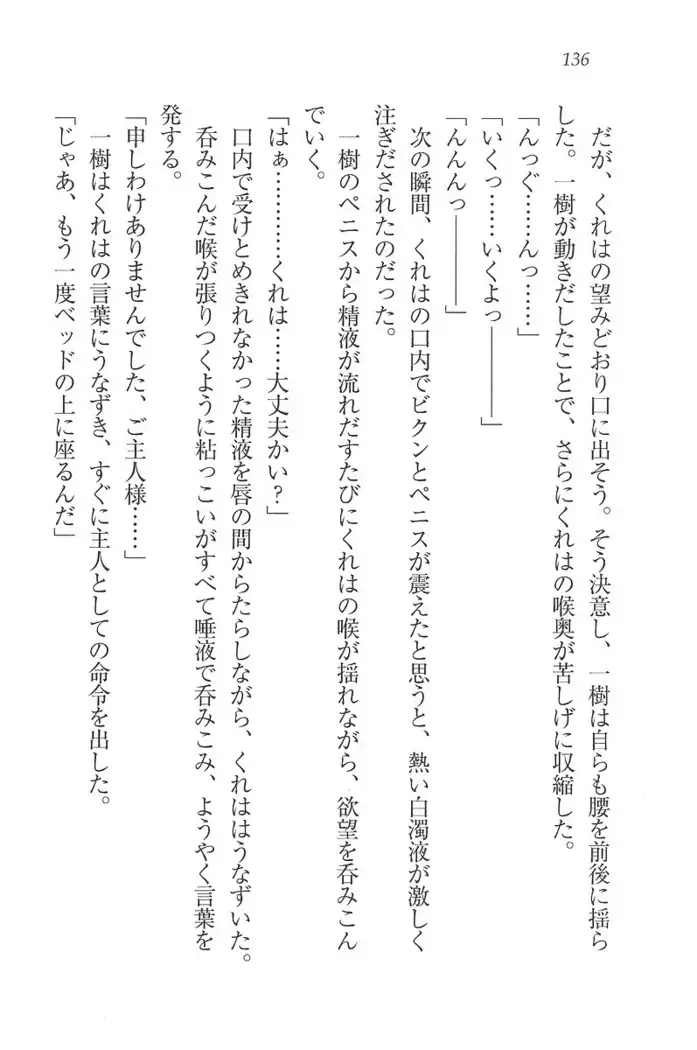 136
だが、くれはの望みどおり口に出そう。そう決意し、一樹は自らも腰を前後に揺ら
した。一樹が動きだしたことで、さらにくれはの喉奥が苦しげに収縮した。
「んっぐ……んっ……」
「いくっ……いくよっ――――」
「んんんっ――――」
次の瞬間、くれはの口内でビクンとペニスが震えたと思うと、熱い白濁液が激しく
注ぎだされたのだった。
一樹のペニスから精液が流れだすたびにくれはの喉が揺れながら、欲望を呑みこん
でいく。
「はぁ…………くれは……大丈夫かい？」
口内で受けとめきれなかった精液を唇の間からたらしながら、くれはうなずいた。
呑みこんだ喉が張りつくように粘っこいがすべて唾液で呑みこみ、ようやく言葉を
発する。
「申しわけありませんでした、ご主人様……」
一樹はくれはの言葉にうなずき、すぐに主人としての命令を出した。
「じゃあ、もう一度ベッドの上に座るんだ」